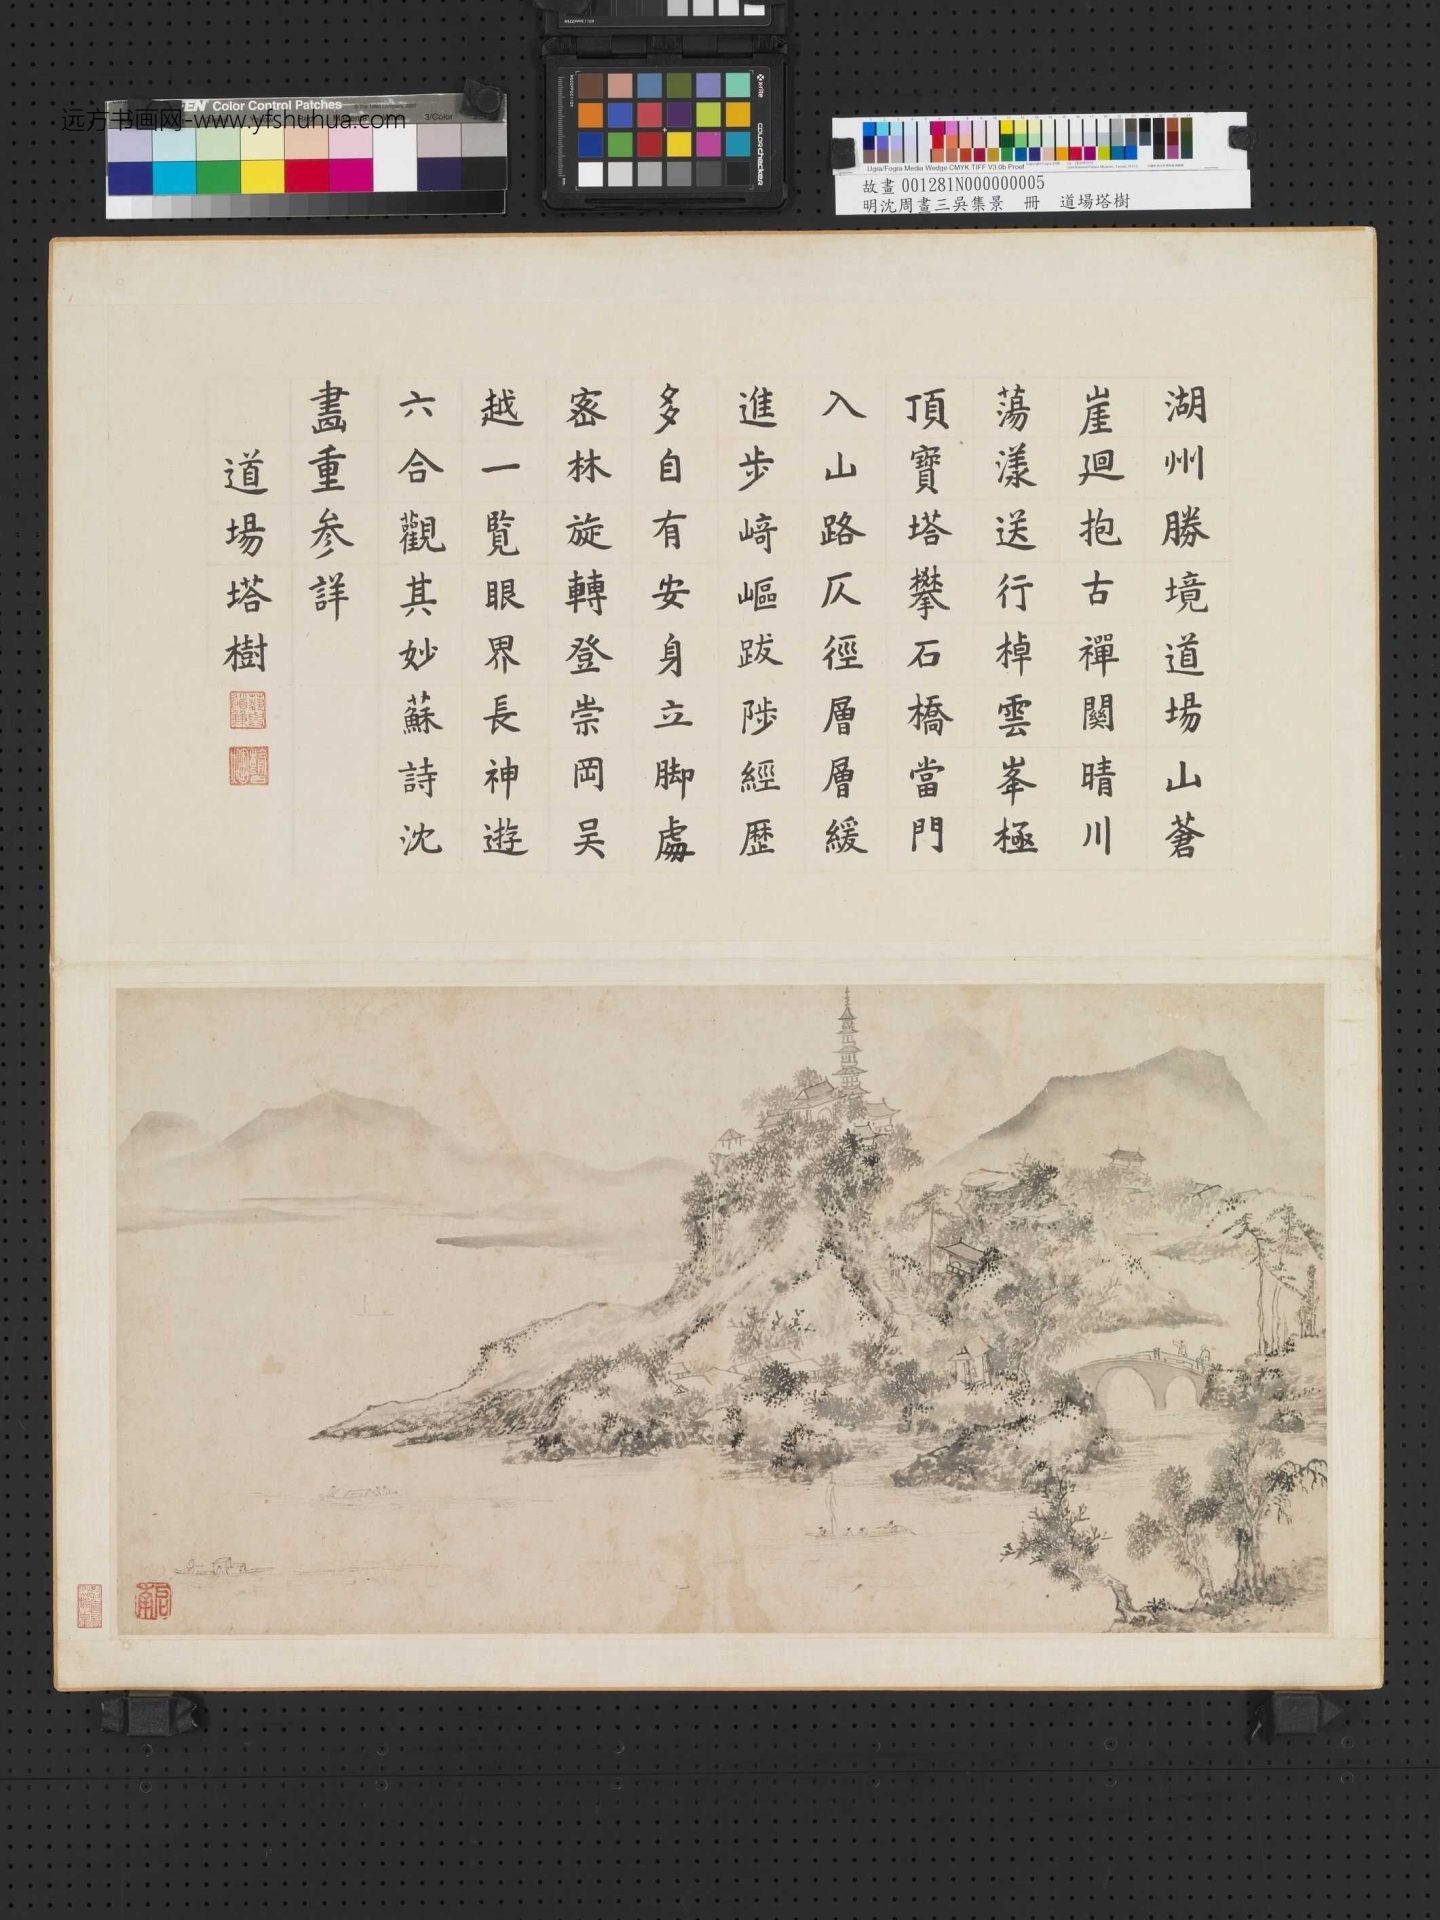 MSCCPPPE1109
x-rite
colorchecker
MSCCPPCC1109
Color Control Patches
3/Color
远方书画网-www.yfshuhua.com
Ugra/Fogra Media Wedge CMYK TIFF V3.0b Proof
故畫 001281N000000005
明沈周畫三吳集景 冊 道場塔樹
湖州勝境道場山蒼
崖迴抱古禪關晴川
蕩漾送行棹雲峯極
頂寶塔攀石橋當門
入山路仄徑層層緩
進步崎嶇跋陟經歷
多自有安身立脚處
密林旋轉登崇岡吴
越一覧眼界長神遊
六合觀其妙蘇詩沈
畵重参詳
道場塔樹
啟南